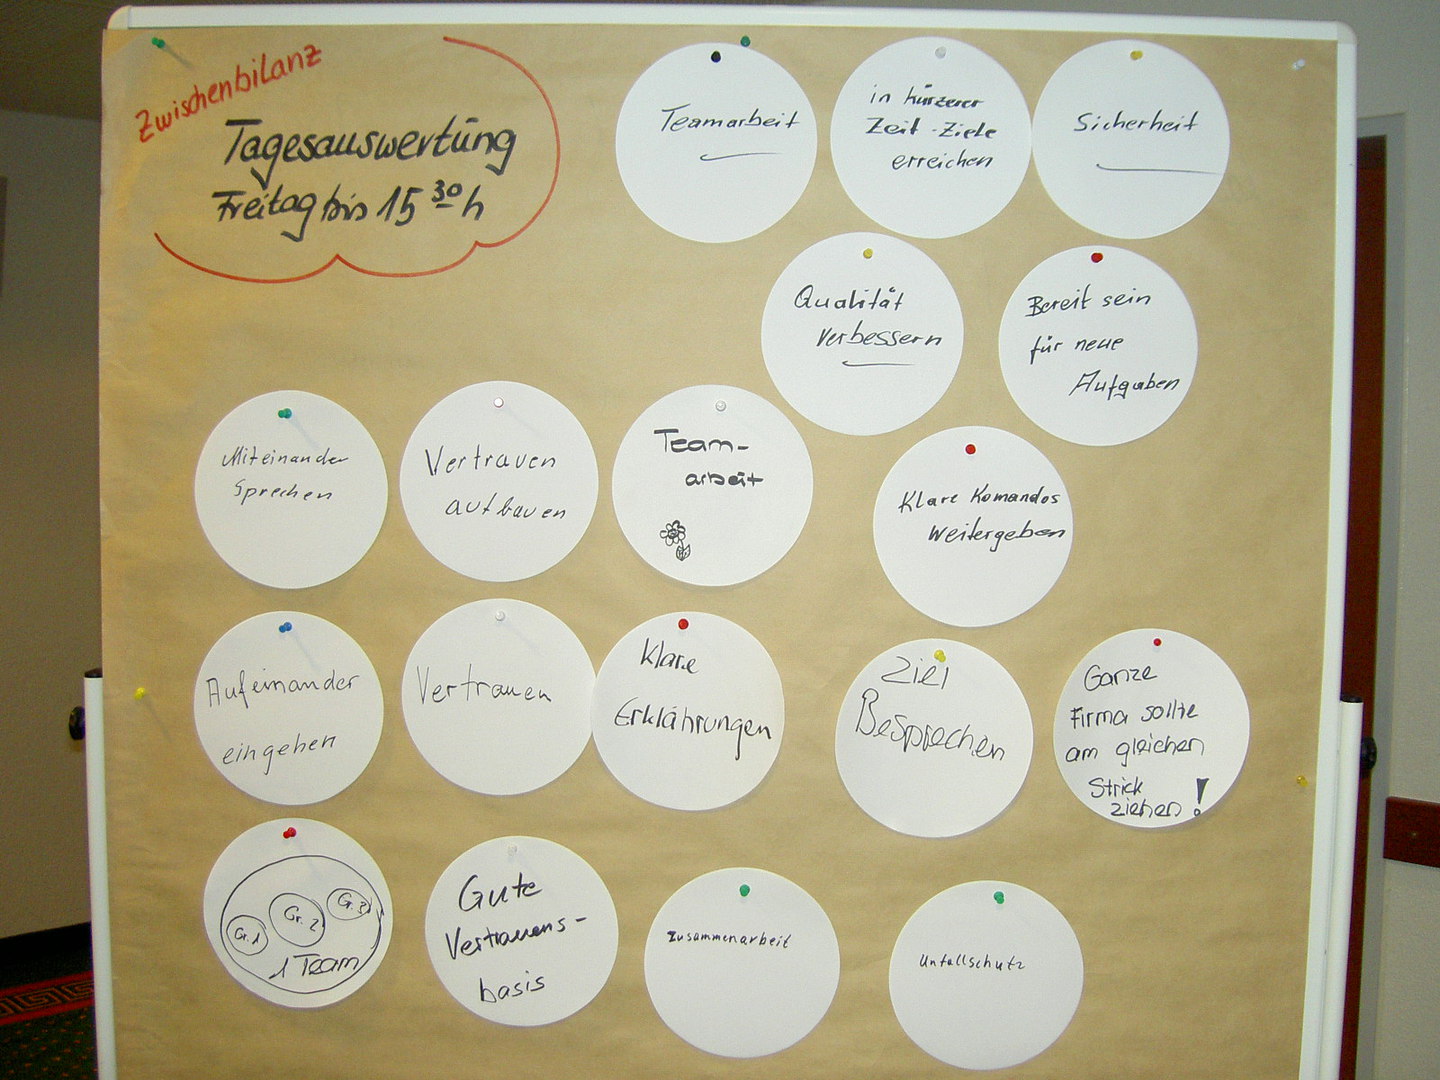 Zwischenbilanz
Tagesauswertung
Freitag bis 15 30 h
Teamarbeit
in kürzerer
Zeit - Ziele
erreichen
Sicherheit
Qualität
verbessern
Bereit sein
für neue
Aufgaben
Miteinander
Sprechen
Vertrauen
aufbauen
Team-
arbeit
Klare Komandos
weitergeben
Aufeinander
eingehen
Vertrauen
Klare
Erklährungen
Ziel
Besprechen
Ganze
Firma sollte
am gleichen
Strick
ziehen!
Gr. 1
Gr. 2
Gr. 3
1 Team
Gute
Vertrauens-
basis
Zusammenarbeit
Unfallschutz